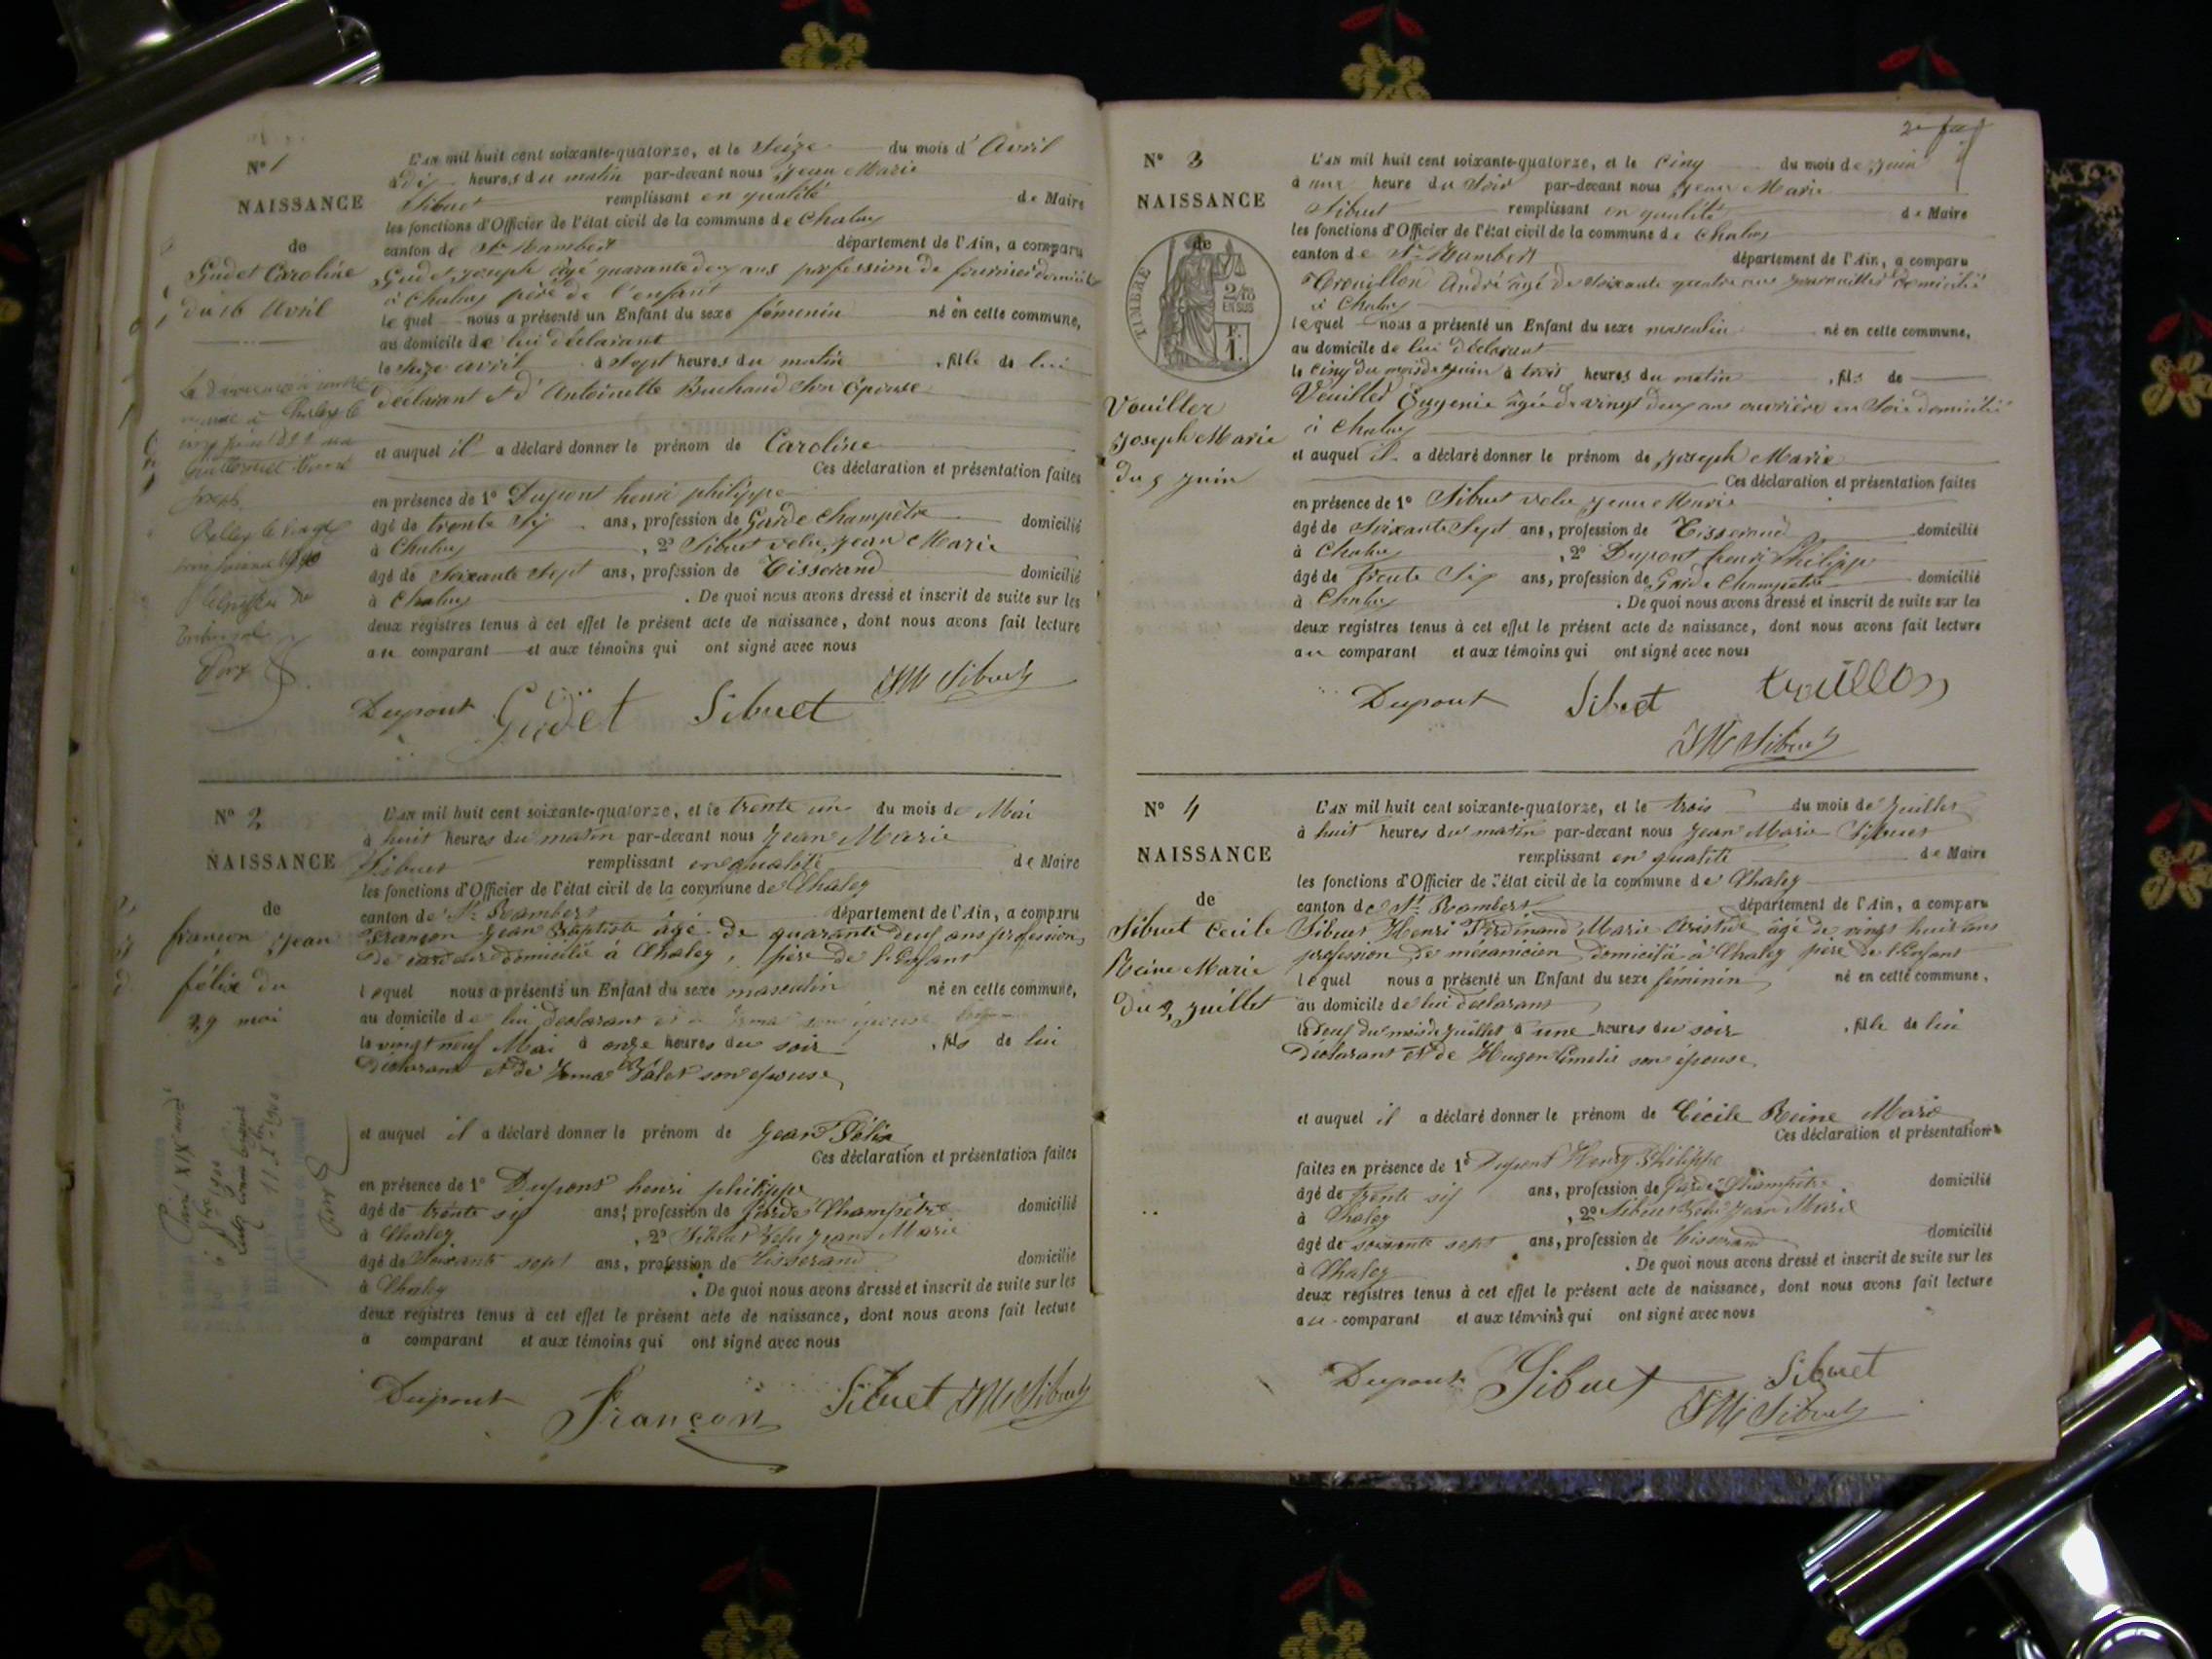 N° 1
NAISSANCE
de
Gudet Caroline
du 16 Avril
L'AN mil huit cent soixante-quatorze, et le Seize du mois d'Avril
à dix heures du matin par-devant nous Jean Marie
Sibuet remplissant en qualité de Maire
les fonctions d'Officier de l'état civil de la commune de Chaley
canton de St Rambert département de l'Ain, a comparu
Gudet Joseph âgé quarante deux ans profession de domicilié
à Chaley père de l'enfant
lequel nous a présenté un Enfant du sexe féminin né en cette commune,
au domicile de lui déclarant
le seize avril à sept heures du matin, fille de lui
déclarant et d'Antoinette son épouse
et auquel il a déclaré donner le prénom de Caroline
Ces déclaration et présentation faites
en présence de 1° Dupont henri philippe
âgé de trente six ans, profession de Garde Champêtre domicilié
à Chaley, 2° Sibuet velu, Jean Marie
âgé de Soixante Sept ans, profession de Tisserand domicilié
à Chaley. De quoi nous avons dressé et inscrit de suite sur les
deux registres tenus à cet effet le présent acte de naissance, dont nous avons fait lecture
au comparant et aux témoins qui ont signé avec nous
Dupont Gudet Sibuet JM Sibuet
N° 2
NAISSANCE
de
françon Jean
félix du
29 mai
L'AN mil huit cent soixante-quatorze, et le trente un du mois de Mai
à huit heures du matin par-devant nous Jean Marie
Sibuet remplissant en qualité de Maire
les fonctions d'Officier de l'état civil de la commune de Chaley
canton de St Rambert département de l'Ain, a comparu
françon Jean Baptiste âgé de quarante deux ans profession
de domicilié à Chaley, père de l'Enfant
lequel nous a présenté un Enfant du sexe masculin né en cette commune,
au domicile de lui déclarant
le vingt neuf Mai à onze heures du soir, fils de lui
Déclarant et de son épouse
et auquel il a déclaré donner le prénom de Jean Félix
Ces déclaration et présentation faites
en présence de 1° Dupont henri philippe
âgé de trente six ans, profession de Garde Champêtre domicilié
à Chaley, 2° Sibuet Velu Jean Marie
âgé de Soixante sept ans, profession de tisserand domicilié
à Chaley. De quoi nous avons dressé et inscrit de suite sur les
deux registres tenus à cet effet le présent acte de naissance, dont nous avons fait lecture
a comparant et aux témoins qui ont signé avec nous
Dupont françon Sibuet JM Sibuet
N° 3
NAISSANCE
de
TIMBRE
2/10
EN SUS
F.
1.
Vouiller
Joseph Marie
du 5 Juin
L'AN mil huit cent soixante-quatorze, et le cinq du mois de Juin
à une heure du Soir par-devant nous Jean Marie
Sibuet remplissant en qualité de Maire
les fonctions d'Officier de l'état civil de la commune de Chaley
canton de St Rambert département de l'Ain, a comparu
Trouillon André âgé de Soixante quatre ans domicilié
à Chaley
lequel nous a présenté un Enfant du sexe masculin né en cette commune,
au domicile de lui déclarant
le cinq du mois de Juin à trois heures du matin, fils de
Vouiller Eugenie âgée de vingt deux ans ouvrière en Soie domicilié
à Chaley
et auquel il a déclaré donner le prénom de Joseph Marie
Ces déclaration et présentation faites
en présence de 1° Sibuet velu Jean Marie
âgé de Soixante Sept ans, profession de Tisserand domicilié
à Chaley, 2° Dupont henri Philippe
âgé de trente Six ans, profession de Garde Champêtre domicilié
à Chaley. De quoi nous avons dressé et inscrit de suite sur les
deux registres tenus à cet effet le présent acte de naissance, dont nous avons fait lecture
au comparant et aux témoins qui ont signé avec nous
Dupont Sibuet trouillon
JM Sibuet
N° 4
NAISSANCE
de
Sibuet Cécile
Reine Marie
du 2 Juillet
L'AN mil huit cent soixante-quatorze, et le trois du mois de Juillet
à huit heures du matin par-devant nous Jean Marie Sibuet
remplissant en qualité de Maire
les fonctions d'Officier de l'état civil de la commune de Chaley
canton de St Rambert département de l'Ain, a comparu
Sibuet Henri Ferdinand Marie Aristide âgé de vingt huit ans
profession de mécanicien domicilié à Chaley père de l'Enfant
lequel nous a présenté un Enfant du sexe féminin né en cette commune,
au domicile de lui déclarant
le deux du mois de Juillet à une heures du soir, fille de lui
Déclarant et de son épouse
et auquel il a déclaré donner le prénom de Cécile Reine Marie
Ces déclaration et présentation
faites en présence de 1° Dupont Henry Philippe
âgé de trente six ans, profession de Garde Champêtre domicilié
à Chaley, 2° Sibuet Velu Jean Marie
âgé de soixante sept ans, profession de tisserand domicilié
à Chaley. De quoi nous avons dressé et inscrit de suite sur les
deux registres tenus à cet effet le présent acte de naissance, dont nous avons fait lecture
au comparant et aux témoins qui ont signé avec nous
Dupont Sibuet Sibuet
JM Sibuet